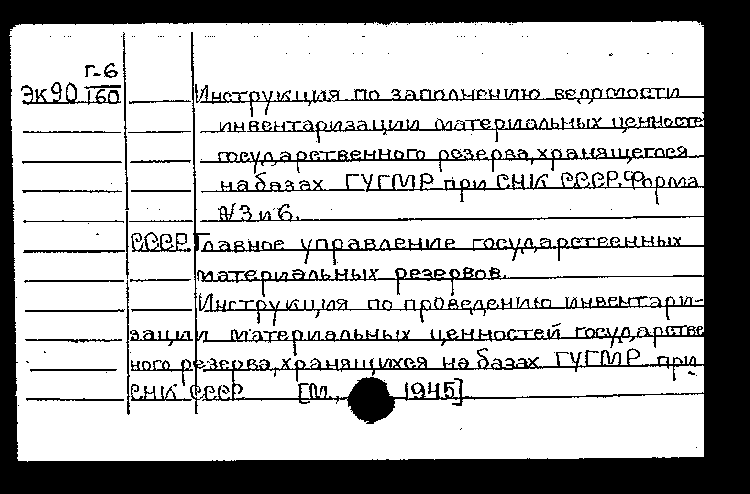 Г-6
Эк90 160 Инструкция по заполнению ведомости
инвентаризации материальных ценносте
государственного резерва, хранящегося
на базах ГУГМР при СНК СССР. Форма
№3 и 6.
СССР. Главное управление государственных
материальных резервов.
Инструкция по проведению инвентари-
зации материальных ценностей государстве
ного резерва, хранящихся на базах ГУГМР при
СНК СССР [М., 1945].